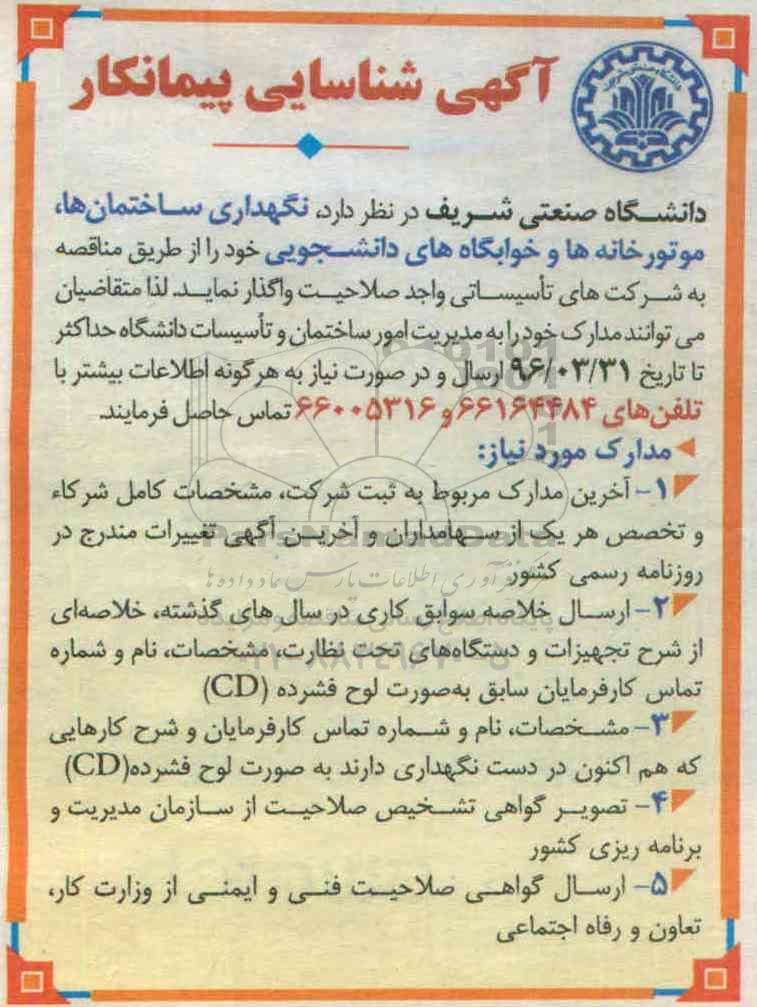 آگهی شناسایی پیمانکار
دانشگاه صنعتی شریف در نظر دارد، نگهداری ساختمان‌ها،
موتورخانه ها و خوابگاه های دانشجویی خود را از طریق مناقصه
به شرکت های تأسیساتی واجد صلاحیت واگذار نماید. لذا متقاضیان
می توانند مدارک خود را به مدیریت امور ساختمان و تأسیسات دانشگاه حداکثر
تا تاریخ ۹۶/۰۳/۳۱ ارسال و در صورت نیاز به هرگونه اطلاعات بیشتر با
تلفن‌های ۶۶۱۶۴۴۸۴ و ۶۶۰۰۵۳۱۶ تماس حاصل فرمایند.
مدارک مورد نیاز:
۱- آخرین مدارک مربوط به ثبت شرکت، مشخصات کامل شرکاء
و تخصص هر یک از سهامداران و آخرین آگهی تغییرات مندرج در
روزنامه رسمی کشور
۲- ارسال خلاصه سوابق کاری در سال های گذشته، خلاصه‌ای
از شرح تجهیزات و دستگاه‌های تحت نظارت، مشخصات، نام و شماره
تماس کارفرمایان سابق به‌صورت لوح فشرده (CD)
۳- مشخصات، نام و شماره تماس کارفرمایان و شرح کارهایی
که هم اکنون در دست نگهداری دارند به صورت لوح فشرده(CD)
۴- تصویر گواهی تشخیص صلاحیت از سازمان مدیریت و
برنامه ریزی کشور
۵- ارسال گواهی صلاحیت فنی و ایمنی از وزارت کار،
تعاون و رفاه اجتماعی
ParsNamadData